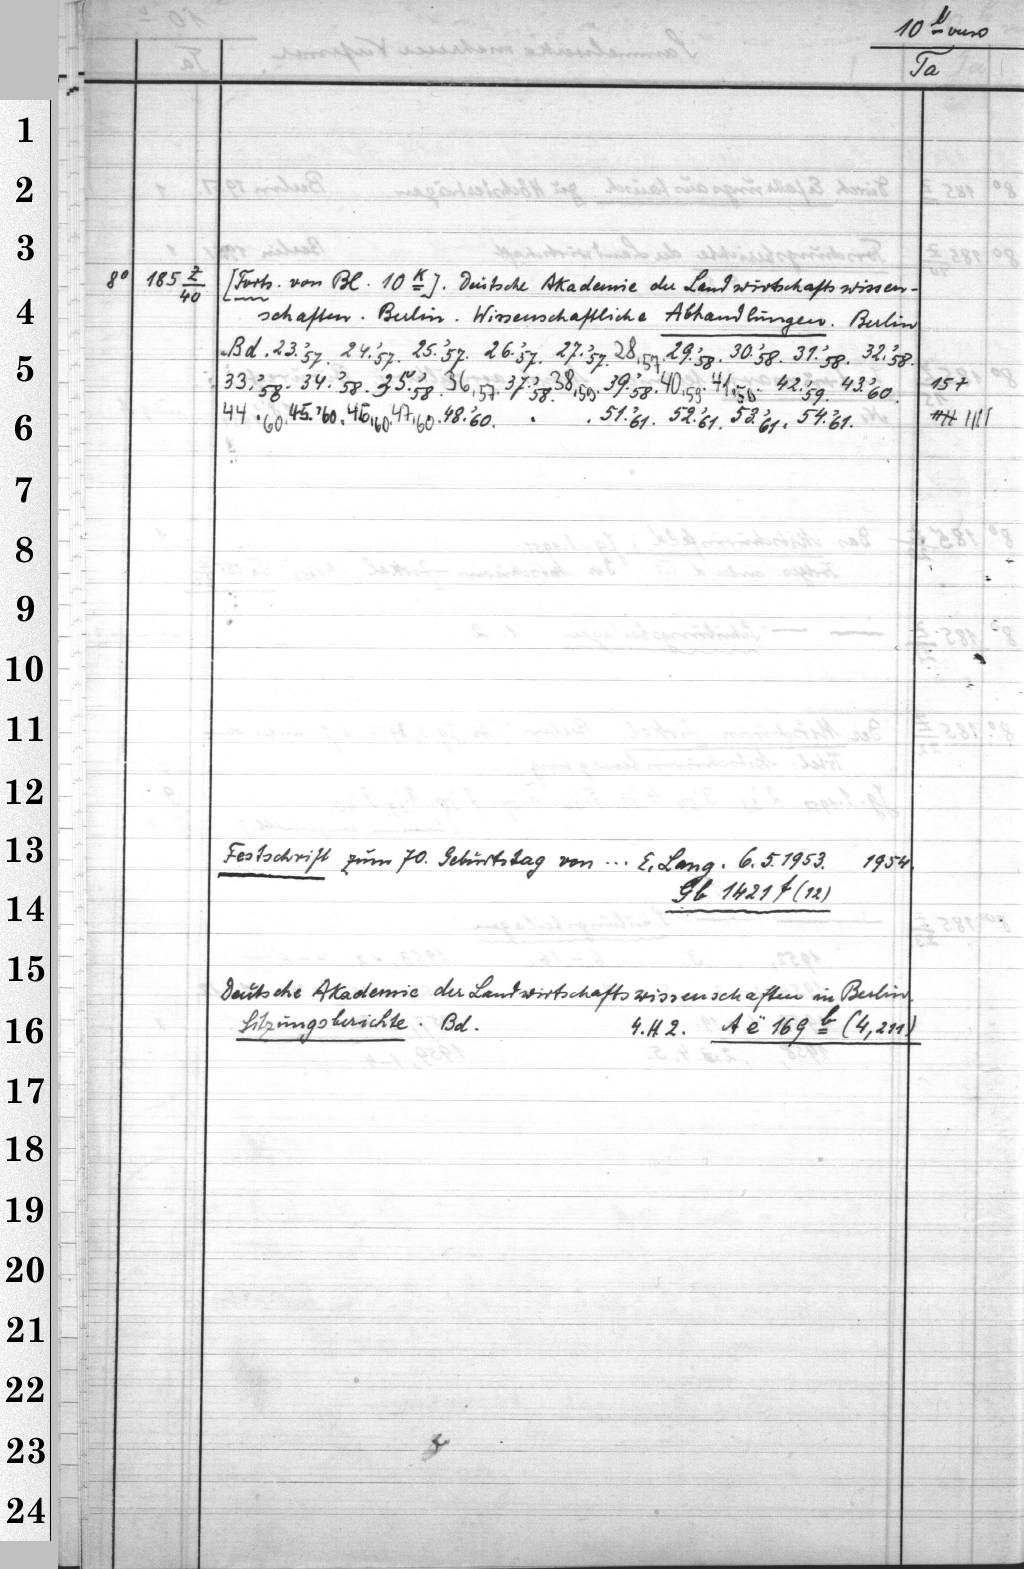 10 verso
Ta
8° 185 Z/40 [Forts. von Bl. 10 K]. Deutsche Akademie der Landwirtschaftswissen-
schaften. Berlin. Wissenschaftliche Abhandlungen. Berlin
Bd. 23.'57. 24.'57. 25.'57. 26.'57. 27.'57. 28,57. 29.'58. 30.'58. 31.'58. 32.'58.
33.'58. 34.'58. 35.'58. 36,57. 37.'58. 38,59. 39.'58. 40,59. 41,58. 42.'59. 43.'60. 157
44.60. 45.'60. 46,60. 47,60. 48.'60. . . 51.'61. 52.'61. 53.'61. 54.'61.
Festschrift zum 70. Geburtstag von ... E. Lang. 6.5.1953. 1954.
Gb 1421 t (12)
Deutsche Akademie der Landwirtschaftswissenschaften in Berlin.
Sitzungsberichte. Bd. 4.H.2. Aë 169 b (4,211)
1
2
3
4
5
6
7
8
9
10
11
12
13
14
15
16
17
18
19
20
21
22
23
24